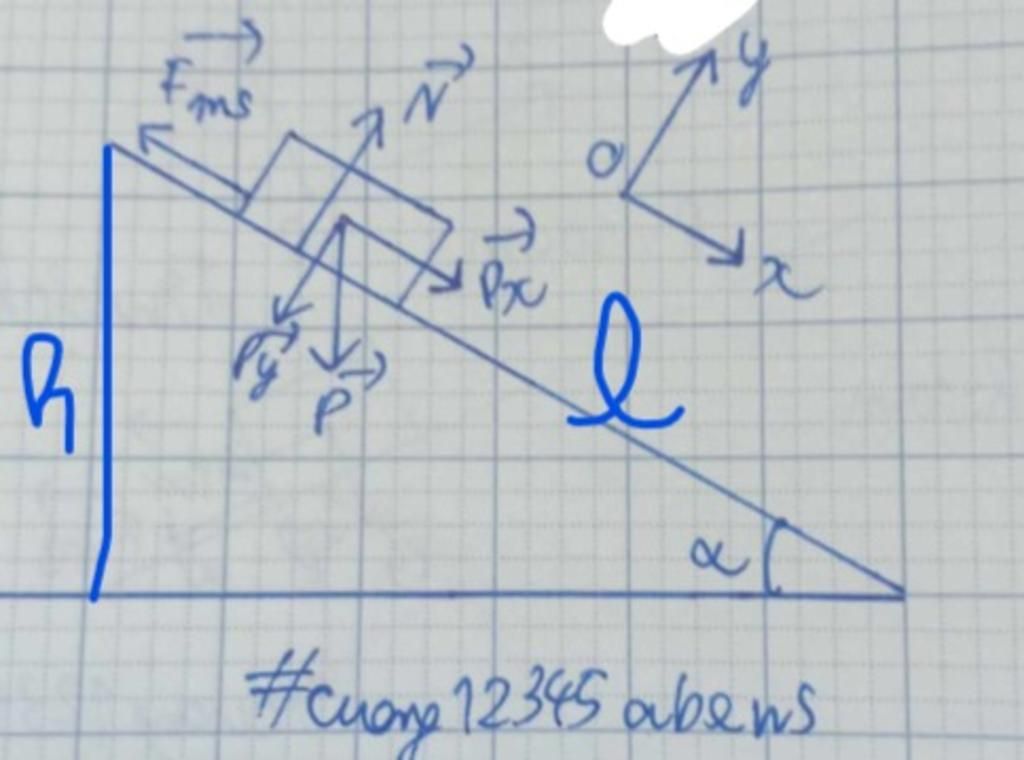 F⃗ms
N⃗
y
O
x
P⃗x
P⃗y
P⃗
h
l
α
#cuong12345abems